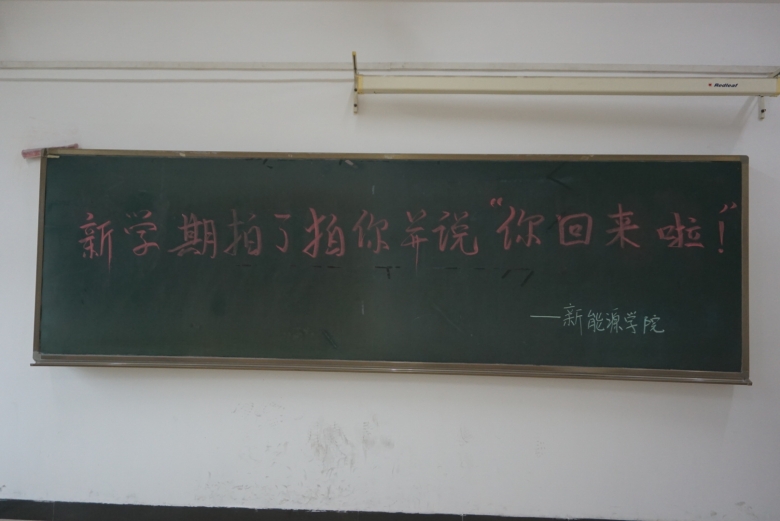 Redleaf
新学期拍了拍你并说“你回来啦！”
——新能源学院